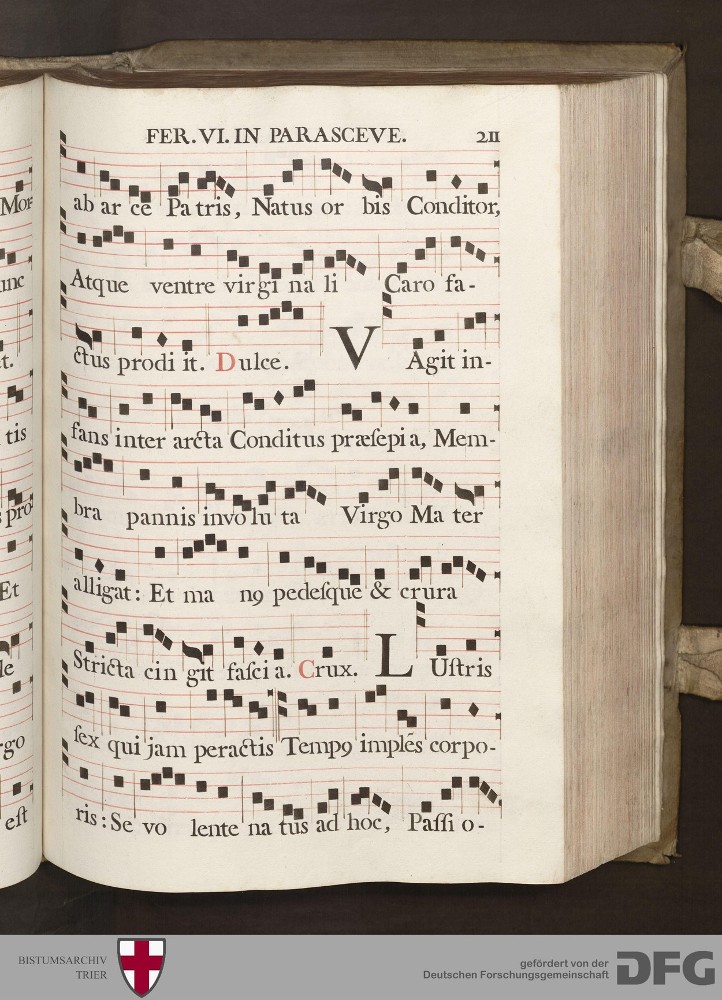 FER. VI. IN PARASCEVE. 211
ab ar ce Pa tris, Natus or bis Conditor,
Atque ventre virgi na li Caro fa-
ctus prodi it. Dulce. V Agit in-
fans inter arcta Conditus præſepi a, Mem-
bra pannis invo lu ta Virgo Ma ter
alligat: Et ma nꝯ pedeſque & crura
Stricta cin git faſci a. Crux. L Uſtris
ſex qui jam peractis Tempꝯ implẽs corpo-
ris: Se vo lente na tus ad hoc, Paſſi o-
Mor
unc
et.
tis
s pro
Et
le
rgo
eſt
BISTUMSARCHIV
TRIER
gefördert von der
Deutschen Forschungsgemeinschaft
DFG